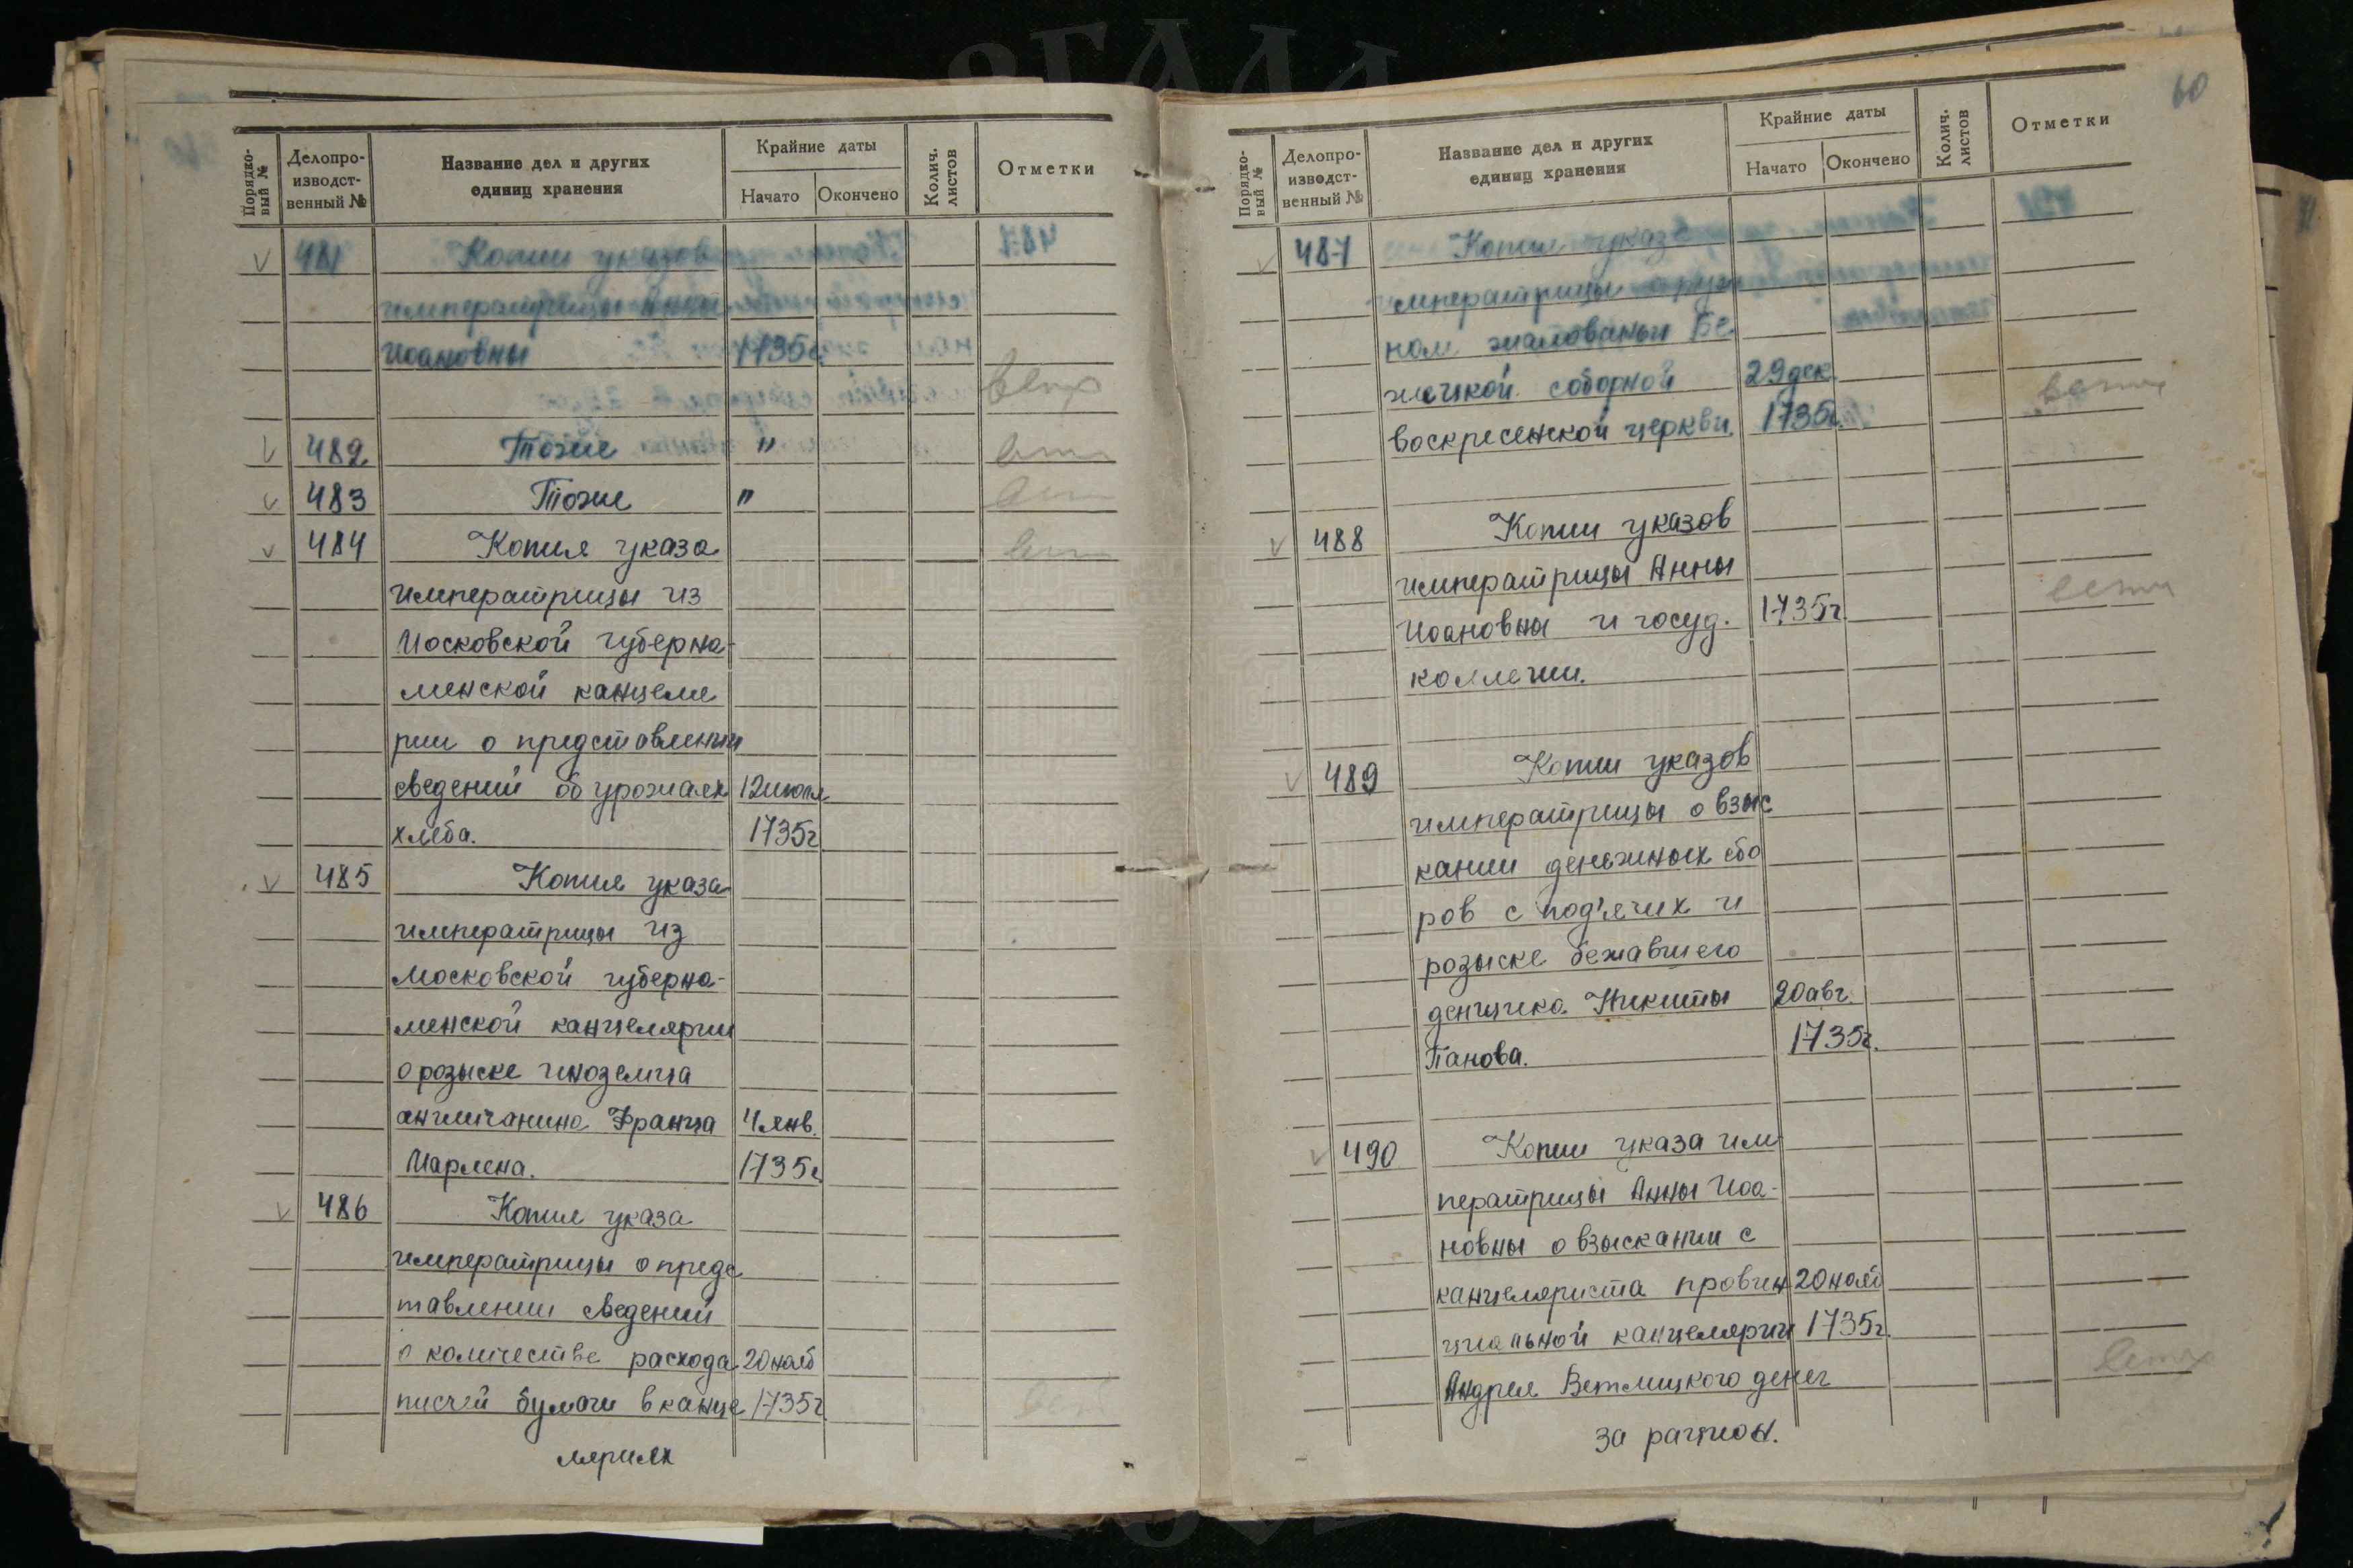 Порядко-
вый №
Делопро-
изводст-
венный №
Название дел и других
единиц хранения
Крайние даты
Начато
Окончено
Колич.
листов
Отметки
481 Копии указов
императрицы Анны
Иоановны 1735г.
ветх
482 Тоже "
483 Тоже "
484 Копия указа
императрицы из
Московской губерна-
менской канцеля
рии о представлении
сведений об урожаях 12 июля
хлеба. 1735г
485 Копия указа
императрицы из
Московской губерна-
менской канцелярии
о розыске иноземца
англичанина Франца 4 янв.
Марлена. 1735г
486 Копия указа
императрицы о предс
тавлении сведений
о количестве расхода 20 нояб
писчей бумаги в канце 1735г
ляриях
60
Порядко-
вый №
Делопро-
изводст-
венный №
Название дел и других
единиц хранения
Крайние даты
Начато
Окончено
Колич.
листов
Отметки
487 Копия указа
императрицы о
ном жалованьи Бе
жецкой соборной 29 дек.
воскресенской церкви. 1735г.
ветх
488 Копии указов
императрицы Анны
Иоановны и госуд. 1735г.
коллегии.
489 Копии указов
императрицы о взыс
кании денежных сбо
ров с под'ячих и
розыске бежавшего
денщика Никиты 20 авг.
Панова. 1735г.
490 Копии указа им
ператрицы Анны Иоа-
новны о взыскании с
канцеляриста провин 20 нояб
циальной канцелярии 1735г.
Андрея Ветлицкого денег
ветх
за рацион.